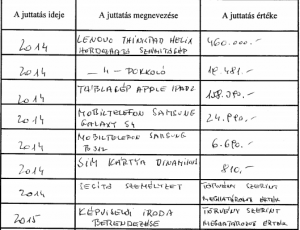 A juttatás ideje
A juttatás megnevezése
A juttatás értéke
2014
LENOVO THINKPAD HELIX
HORDOZHATÓ SZÁMÍTÓGÉP
460.000.-
2014
— 11 — DOKKOLÓ
2014
TÁBLAGÉP APPLE IPAD2
2014
MOBILTELEFON SAMSUNG
GALAXY S4
24.990.-
2014
MOBILTELEFON SAMSUNG
6.690.-
2014
SIM KÁRTYA
810,-
2014
SEGÍTŐ SZEMÉLYZET
TÖRVÉNY SZERINT
MEGHATÁROZOTT ÉRTÉK
2015
KÉPVISELŐI IRODA
BERENDEZÉSE
TÖRVÉNY SZERINT
MEGHATÁROZOTT ÉRTÉK